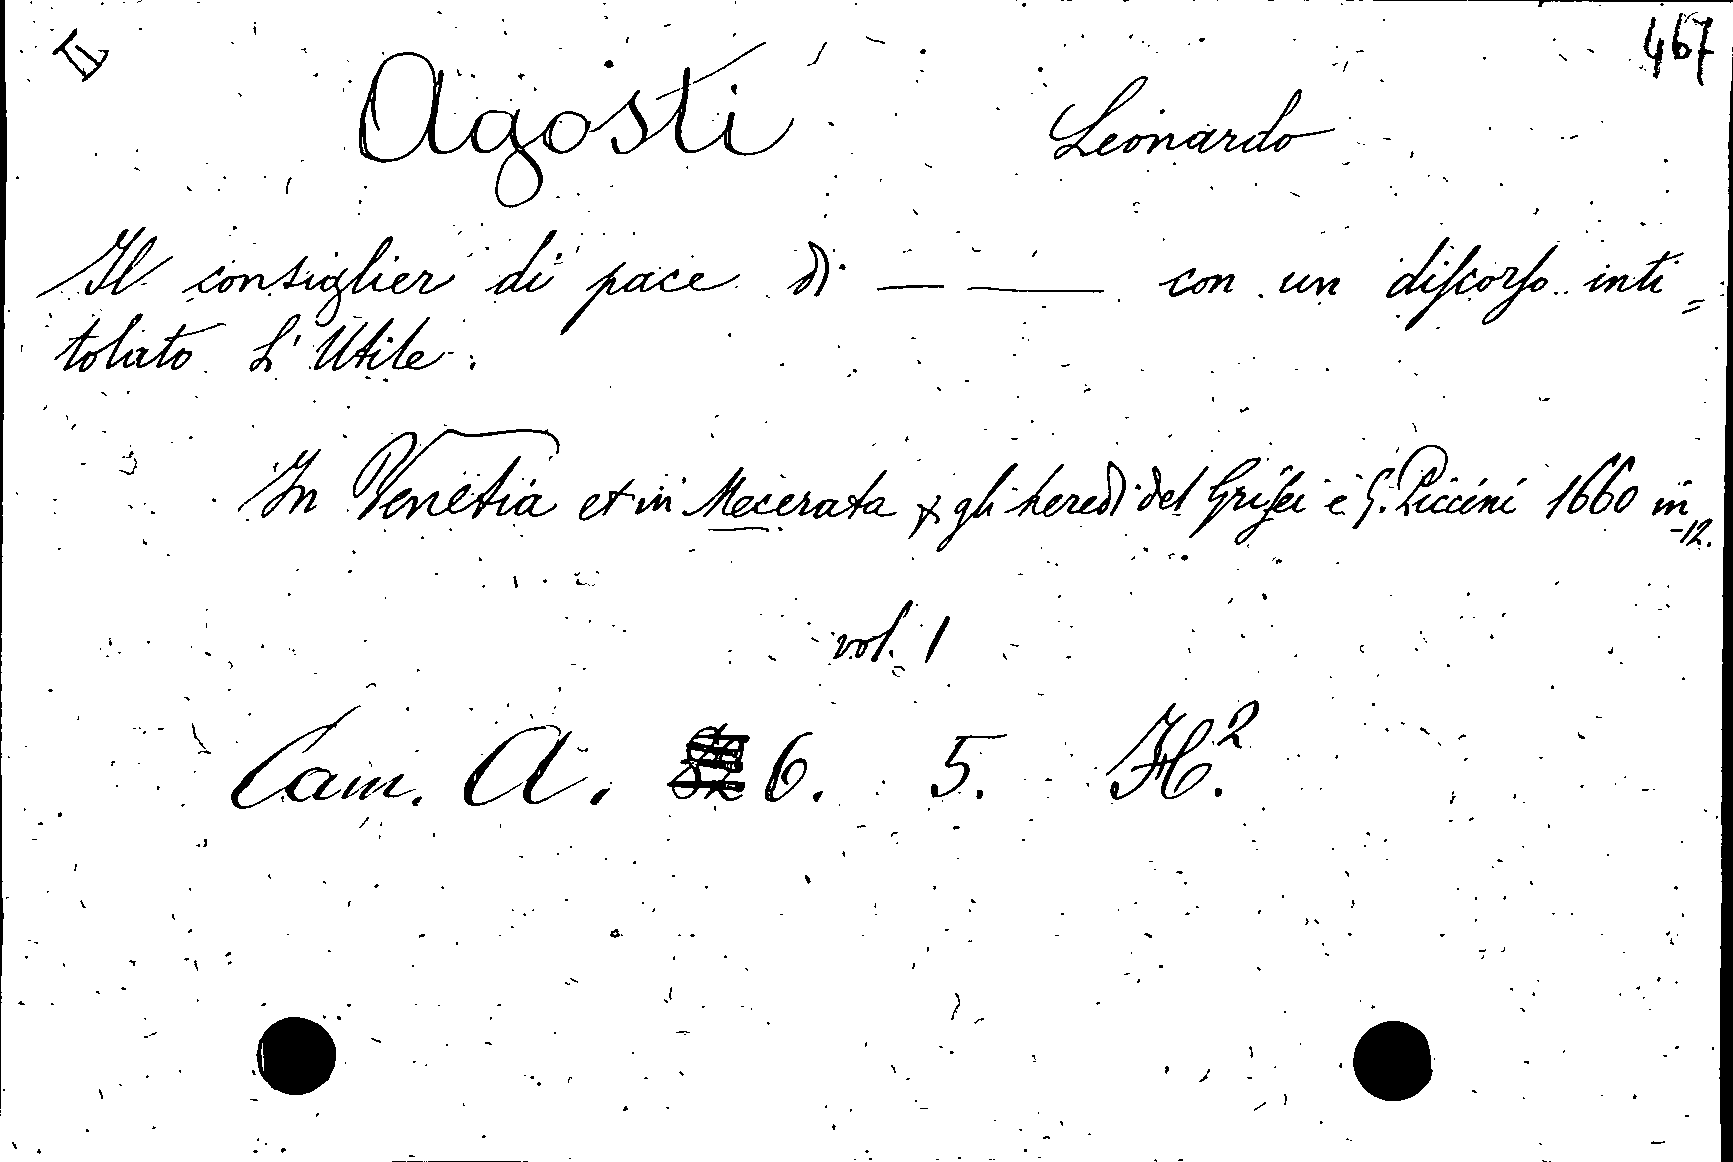 II 467
Agosti Leonardo
Il consiglier di pace di — —— con un discorso inti=
tolato L'Utile.
In Venetia et in Macerata p gli heredi del Grisei e G. Piccini 1660 in
-12.
vol. 1
Cam. A. 6. 5. H².